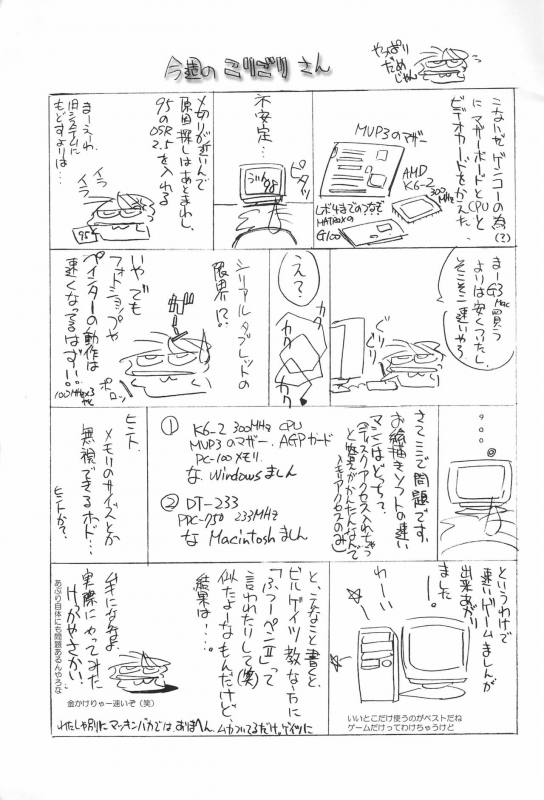 今週の こりごり さん
やっぱり
だめ
じゃん
こないだ ゲンコーの為(?)
にマザーボードとCPUと
ビデオカードをかえた.
MVP3のマザー
AMD
K6-2
300MHz
MATROXの
G100
不安定…
ピタッ
〆切りが近いんで
原因探しはあとまわし.
95の
OSR
2.5を入れる
まーえーわ.
旧システムに
もどすよりは…
イラ
イラ
95
まーG3 Mac 買う
よりは安くついたし.
そこそこ速いやろ.
ぐり
ぐり
カク
カク
カク
えっ?
シリアルタブレットの
限界!?
いや でも
フォトショップや
ペインターの動作は
速くなってるはず!!
100MHz×3
やで
ポロッ
・・・
さてここで問題です.
お絵描きソフトの速い
マシンはどっち?
(ディスクアクセス入れちゃう
と差がかわらんなんで
メモリアクセスのみ)
① K6-2 300MHz CPU
MVP3のマザー. AGPカード
PC-100メモリ.
な Windows ましん
② DT-233
PPC-750 233MHz
な Macintosh ましん
ヒント.
メモリのサイズとか
無視できるホド…
ヒントか?
というわけで
速いゲームましんが
出来あがり
ました
わーい
いいとこだけ使うのがベストだね
ゲームだけってわけちゃうけど
と、こんなこと書くと、
ビルゲイツ教な方に
「ふつーペンⅡ」って
言われたりして(笑)
似たよーなもんだけど、
結果は・・・.
実際にやってみた
金かけりゃー速いぞ（笑）
あぷり自体にも問題あるんやろな
わたしゃ別にマッキンバカでは.ありまへん.ムカついてるだけ。ゲイツに